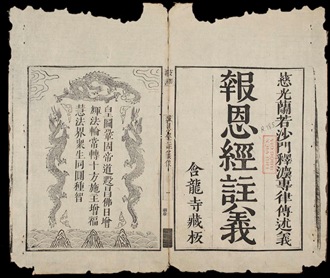 慈光蘭若沙門釋濟專律傳述義
報恩經註義
含龍寺藏板
皇圖鞏固帝道遐昌佛日增
輝法輪常轉十方施主增福
慧法界衆生同圓種智